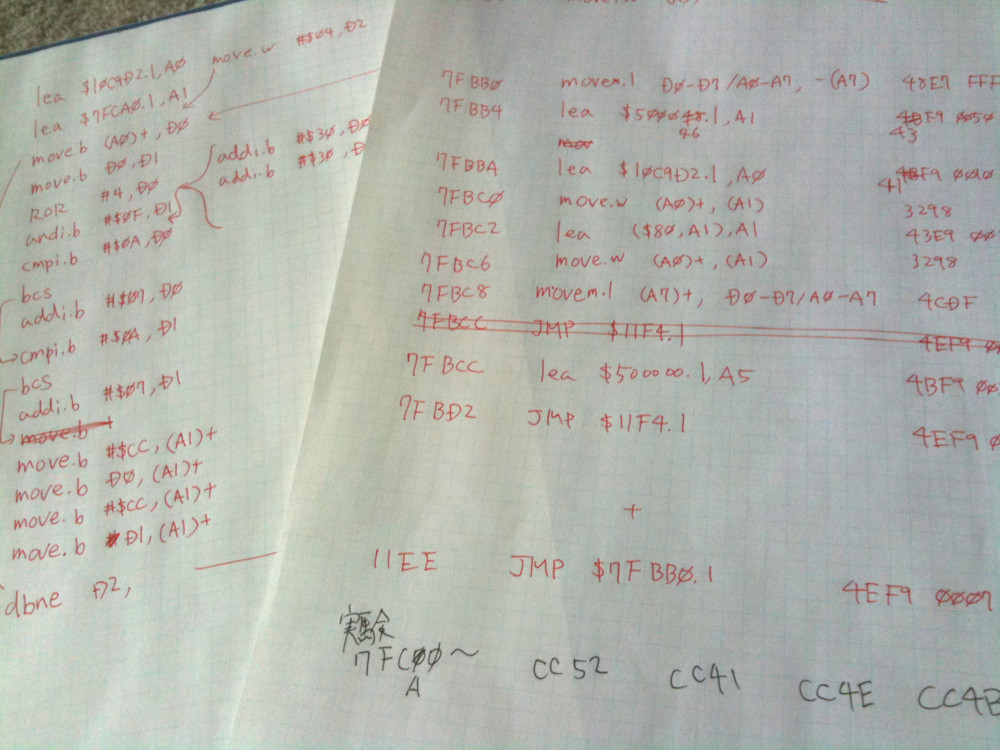 lea $10C9D2.l,A0 move.w #$04,D2
lea $7FCA0.l,A1
move.b (A0)+,D0
move.b D0,D1 addi.b #$30,D0
ROR #4,D0 addi.b #$30,D
andi.b #$0F,D1
cmpi.b #$0A,D0
bcs
addi.b #$07,D0
cmpi.b #$0A,D1
bcs
addi.b #$07,D1
move.b
move.b #$CC,(A1)+
move.b D0,(A1)+
move.b #$CC,(A1)+
move.b D1,(A1)+
dbne D2,
7FBB0 movem.l D0-D7/A0-A7, -(A7) 48E7 FFF
7FBB4 lea $500046.l,A1 43F9 0050
mov
7FBBA lea $10C9D2.l,A0 41F9 0010
7FBC0 move.w (A0)+,(A1) 3298
7FBC2 lea ($80,A1),A1 43E9 00
7FBC6 move.w (A0)+,(A1) 3298
7FBC8 movem.l (A7)+, D0-D7/A0-A7 4CDF
7FBCC JMP $11F4.l 4EF9 00
7FBCC lea $500000.l,A5 4BF9 00
7FBD2 JMP $11F4.l 4EF9 0
+
11EE JMP $7FBB0.l 4EF9 0007
実験
7FC00〜 CC52 CC41 CC4E CC4B
A